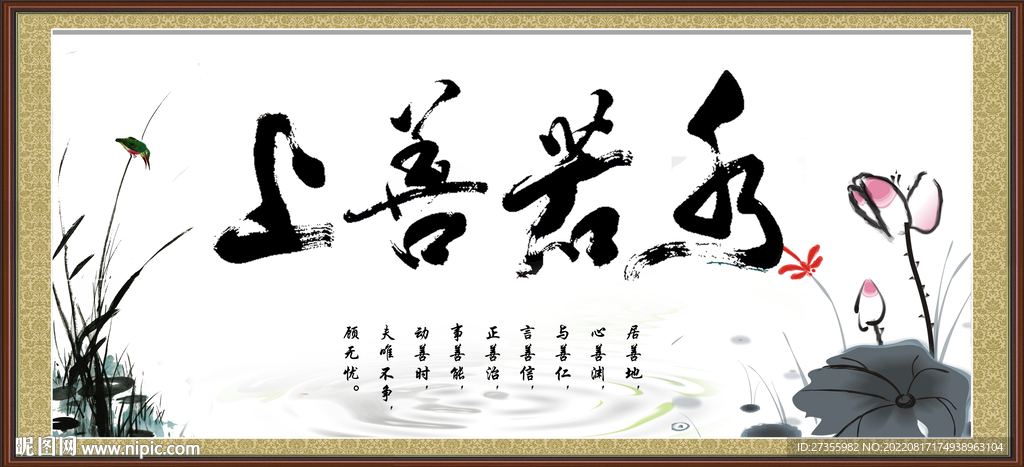 上善若水
居善地，
心善渊，
与善仁，
言善信，
正善治，
事善能，
动善时，
夫唯不争，
顾无忧。
昵图网 www.nipic.com
ID:27355982 NO:20220817174938963104